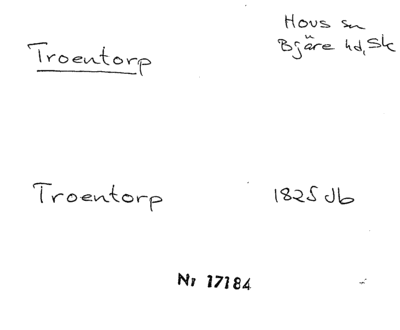 Troentorp
Hovs sn
Bjäre hd, Sk
Troentorp 1825 Jb
Nr 17184